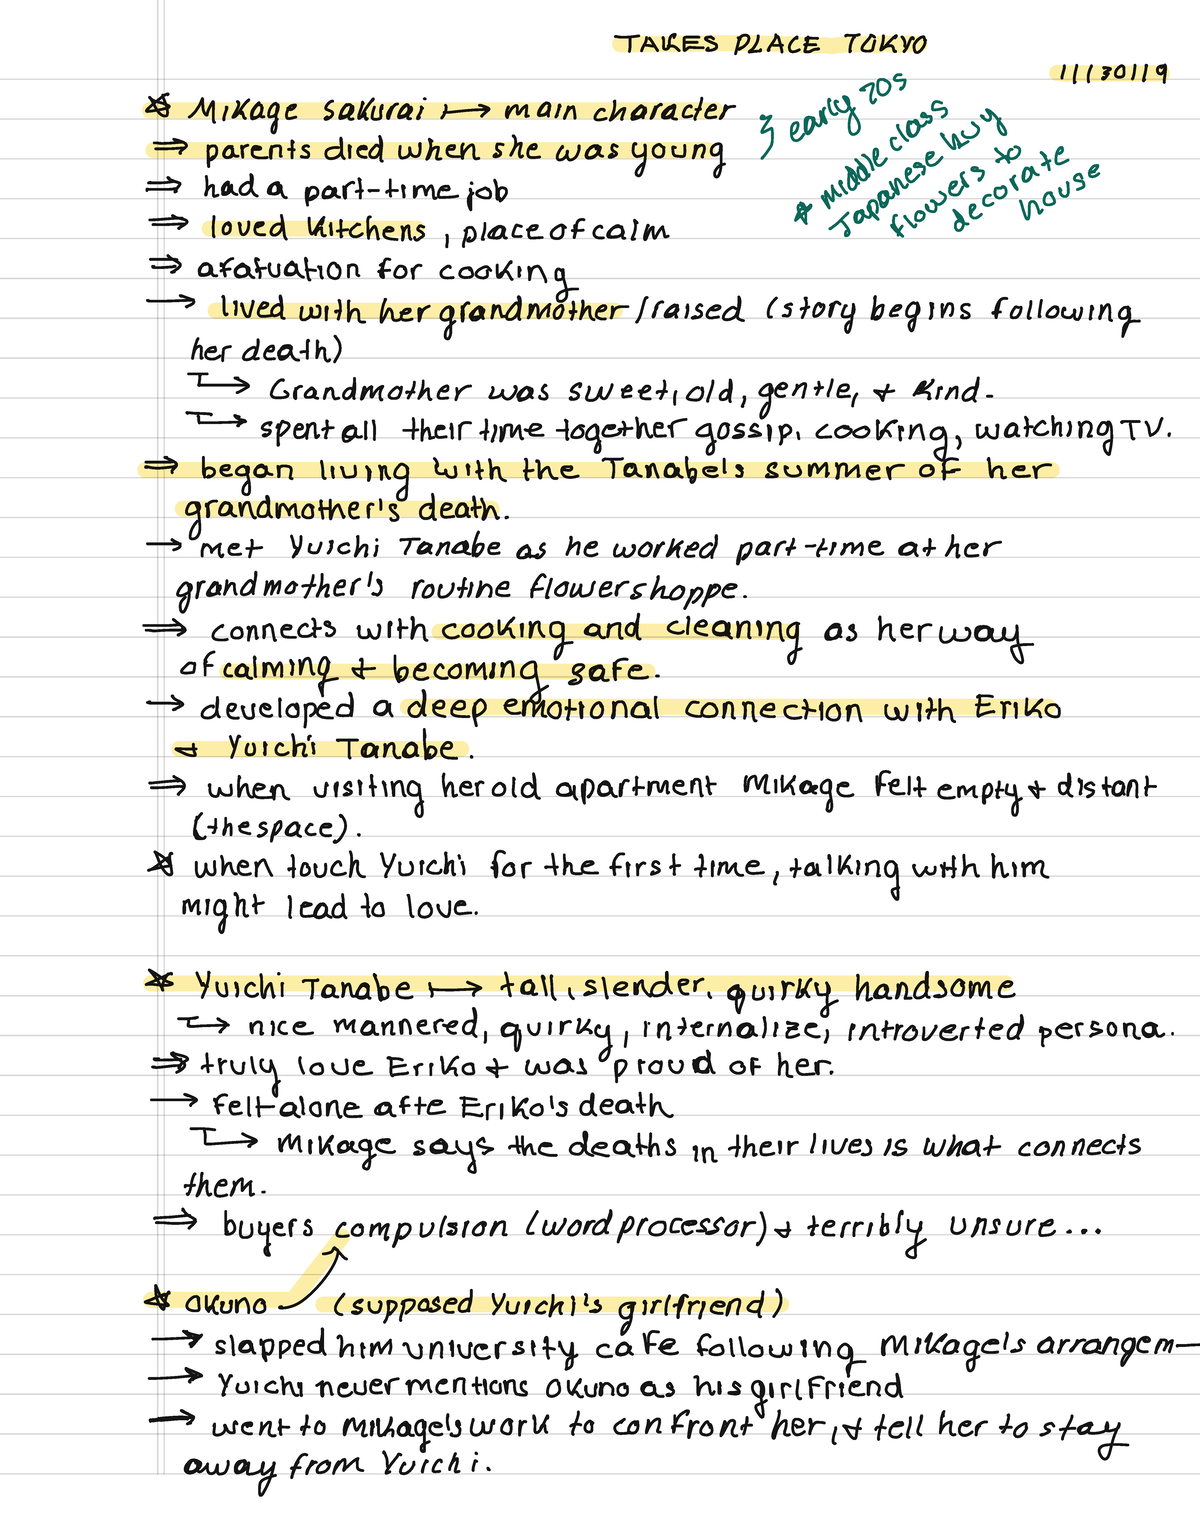 TAKES PLACE TOKYO
11/30/19
☆ Mikage Sakurai ↦ main character
⇒ parents died when she was young
} early 20s
* middle class
Japanese buy
flowers to
decorate
house
⇒ had a part-time job
⇒ loved kitchens, place of calm
⇒ afatuation for cooking
→ lived with her grandmother /raised (story begins following
her death)
↳ Grandmother was sweet, old, gentle, + kind.
↳ spent all their time together gossip, cooking, watching TV.
⇒ began living with the Tanabe's summer of her
grandmother's death.
→ met Yuichi Tanabe as he worked part-time at her
grandmother's routine flower shoppe.
⇒ connects with cooking and cleaning as her way
of calming + becoming safe.
→ developed a deep emotional connection with Eriko
+ Yuichi Tanabe.
⇒ when visiting her old apartment Mikage felt empty + distant
(the space).
☆ when touch Yuichi for the first time, talking with him
might lead to love.
☆ Yuichi Tanabe ↦ tall, slender, quirky handsome
↳ nice mannered, quirky, internalize, introverted persona.
⇒ truly love Eriko + was proud of her.
→ felt alone afte Eriko's death
↳ Mikage says the deaths in their lives is what connects
them.
⇒ buyers compulsion (word processor) + terribly unsure...
☆ Okuno (supposed Yuichi's girlfriend)
→ slapped him university cafe following Mikage's arrangem—
→ Yuichi never mentions Okuno as his girlfriend
→ went to Mikage's work to confront her, + tell her to stay
away from Yuichi.